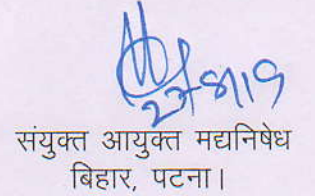 27/8/19
संयुक्त आयुक्त मद्यनिषेध
बिहार, पटना।